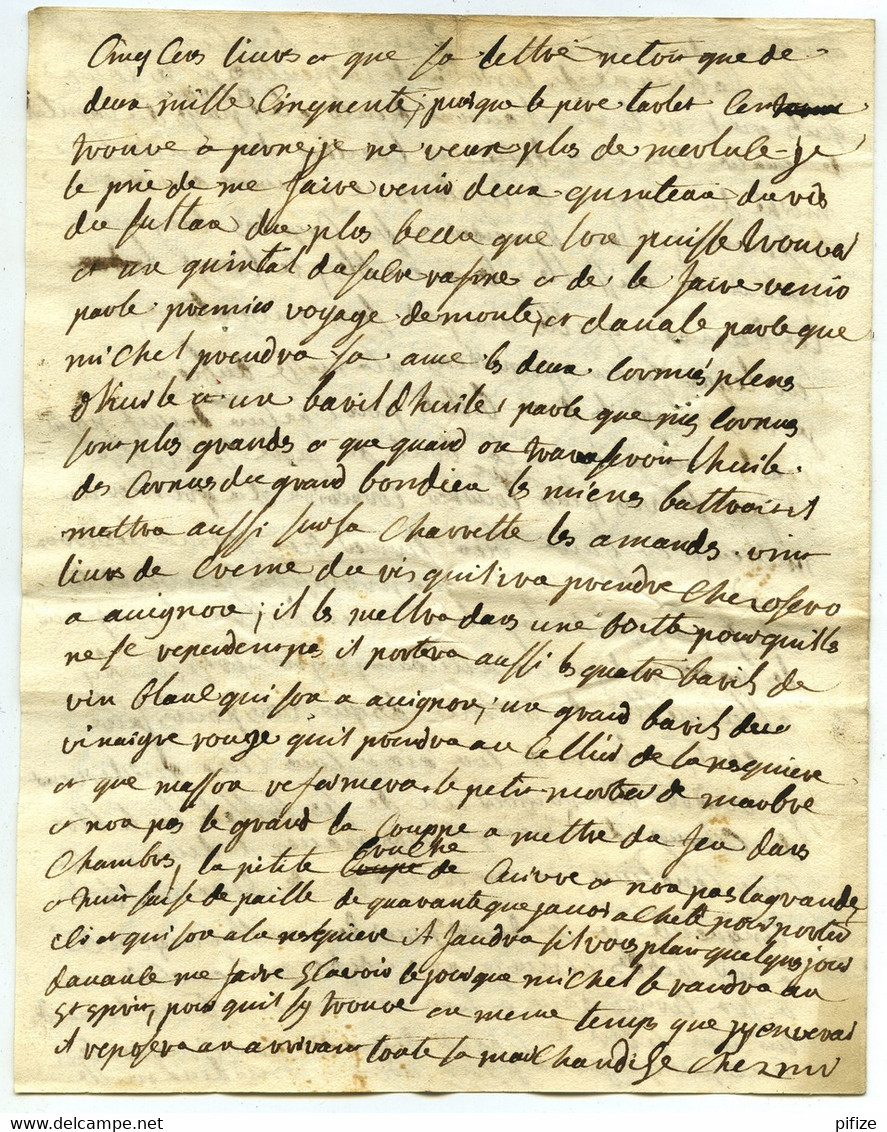 Cinq Cens livres et que sa lettre netoit que de
deux mille Cinquente, puis que le pere tavlet
trouve a perne, je ne veux plus de merlule je
le prie de me faire venir deux quinteau du ris
du sultan du plus beau que lon puisse trouver
et un quintal du sucre rafine et de le faire venir
par le premier voyage de monte, et davale parle que
michel prendra sa ame les deux Cornues plenes
dhuile et un baril dhuile, parle que mes Cornues
sont plus grandes et que quand on transseroit lhuile
des Cornues du grand bondieu les mienes battroit il
mettra aussi sur sa Charrette les amandes vint
livres de Creme du ris quil ira prendre Ches osero
a avignon, il les mettra dans une boitte pour quilles
ne se rependent pas il portera aussi les quatre barils de
vin blanc qui son a avignon, un grand baril de
vinaigre rouge quil prendra au Cellier de la nesquiere
et que masson refermera, le petit mortier de marbre
et non pas le grand la Couppe a mettre du feu dans
Chambres, la petite Coupe de Cuivre et non pas la grande,
et huit saise de paille de quarante que javois achete pour porter
et qui son a la nesquiere il faudra sil vous plait quelques jour
davance me faire scavoir le jour que michel le randra au
st esprit, pour quil sy trouve en meme temps que jy enverai
il reposera an arrivant toute sa marchandise Ches mr
pifize